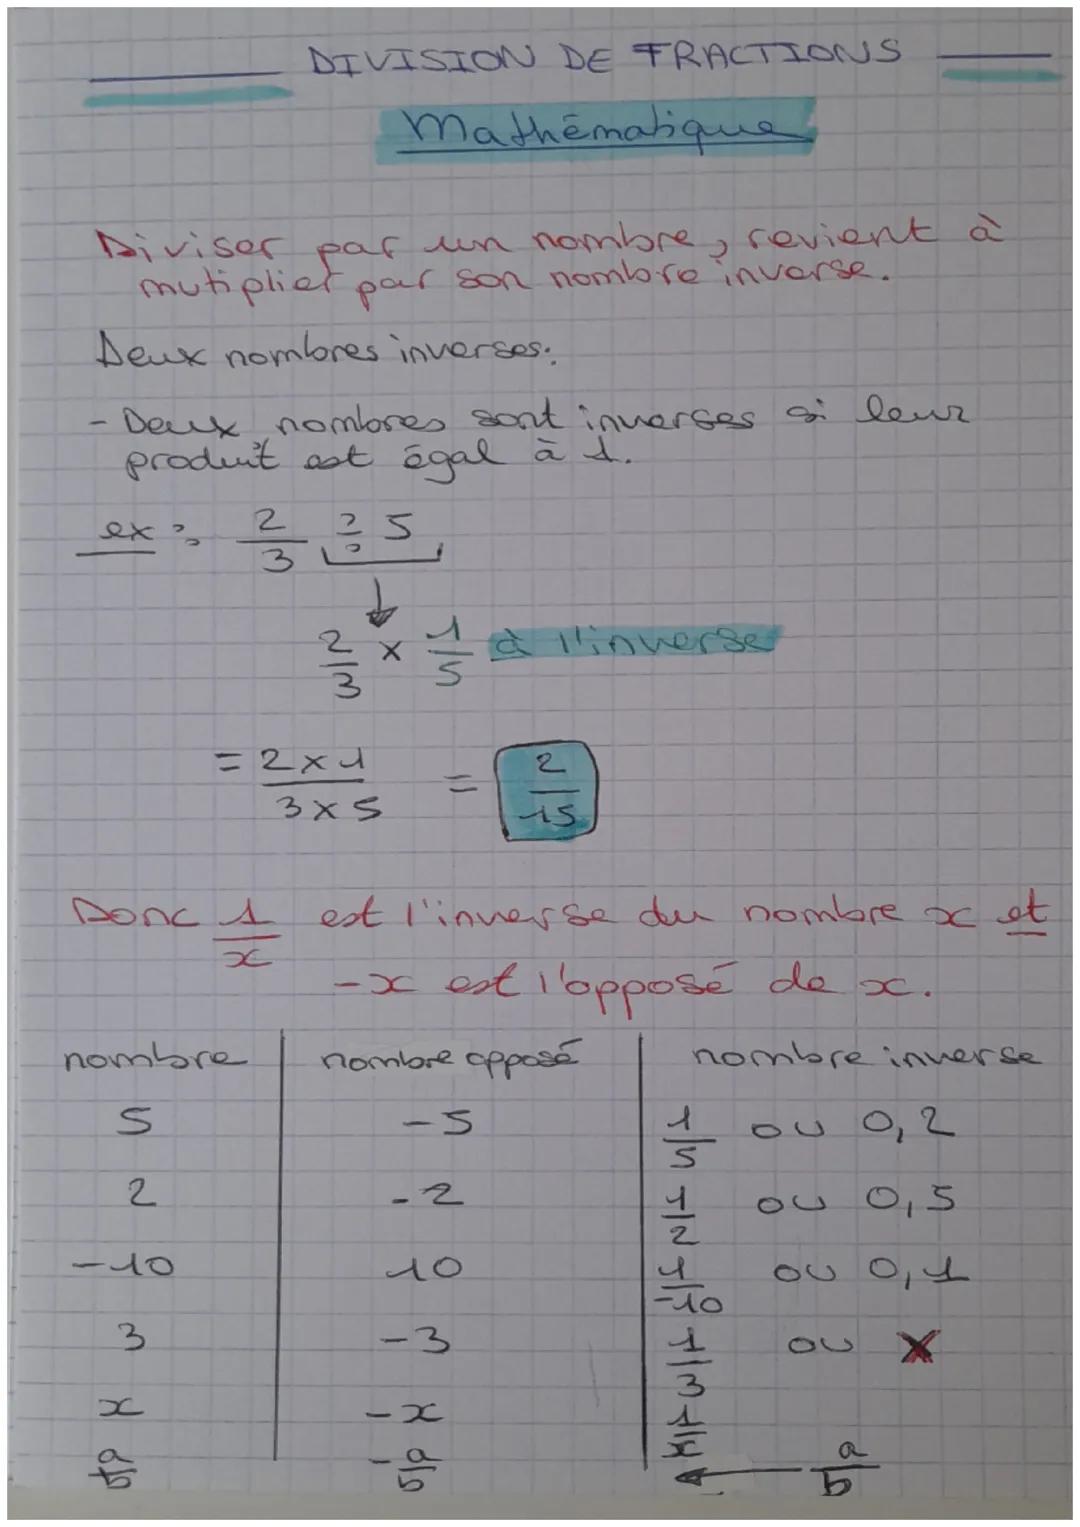 DIVISION DE FRACTIONS
Mathématique
Diviser par un nombre, revient à
mutiplier par son nombre inverse.
Deux nombres inverses:
- Deux nombres sont inverses si leur
produit est égal à 1.
ex : 2/3 : 5
2/3 × 1/5 à l'inverse
= 2×1/3×5 = 2/15
Donc 1/x est l'inverse du nombre x et
-x est l'opposé de x.
nombre | nombre opposé | nombre inverse
5 | -5 | 1/5 ou 0,2
2 | -2 | 1/2 ou 0,5
-10 | 10 | 1/-10 ou 0,1
3 | -3 | 1/3 ou X
x | -x | 1/x
a/b | -a/b | ← a/b